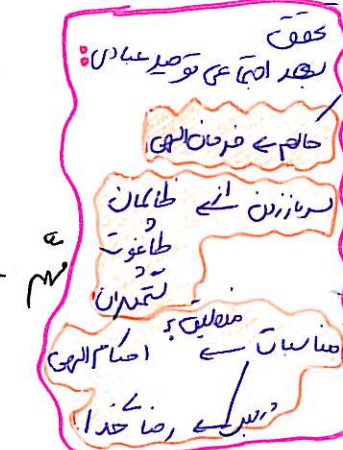 تحقق
بعد اجتماعی توحید عبادی:
حاکم ← فرمان الهی
سرباز زدن از ← ظالمان
و
طاغوت
و
ستمگران
مهم
منطبق بر
مناسبات ← احکام الهی
در پی کسب رضای خدا